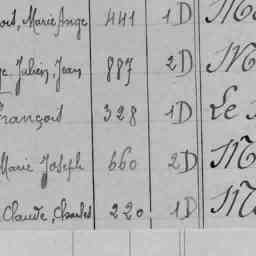 Marie Ange 441 1D
Julien, Jean 887 2D
François 328 1D Le
Marie Joseph 660 2D
Claude, Charles 220 1D